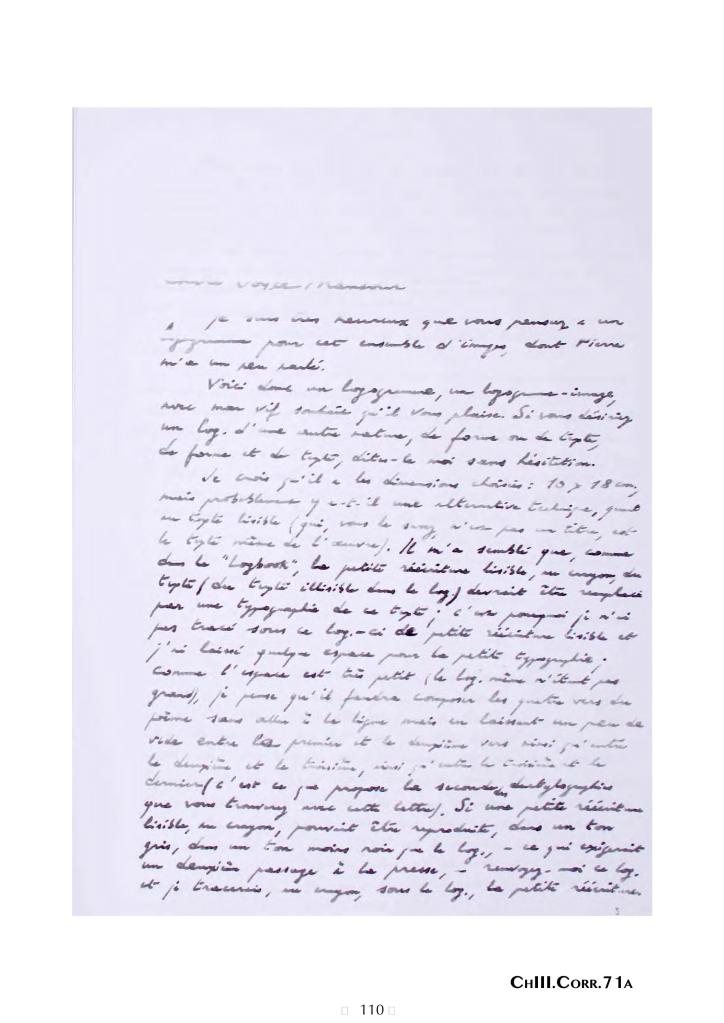 Joyce Mansour
je suis très heureux que vous pensiez à un
logogramme pour cet ensemble d'images, dont Pierre
m'a un peu parlé.
Voici donc un logogramme, un logogramme-image,
avec mon vif souhait qu'il vous plaise. Si vous désiriez
un log. d'une autre nature, de forme ou de texte,
de forme et de texte, dites-le moi sans hésitation.
Je crois qu'il a les dimensions choisies : 10 x 18 cm,
mais probablement y a-t-il une alternative technique, quant
au texte lisible (qui, vous le savez, n'est pas un titre, est
le texte même de l'œuvre). Il m'a semblé que, comme
dans le "Logbook", la petite réécriture lisible, au crayon, du
texte (du texte illisible dans le log) devrait être remplacé
par une typographie de ce texte ; c'est pourquoi je n'ai
pas tracé sous ce log.-ci de petite réécriture lisible et
j'ai laissé quelque espace pour la petite typographie ;
comme l'espace est très petit (le log. même n'étant pas
grand), je pense qu'il faudra composer les quatre vers du
poème sans aller à la ligne mais en laissant un peu de
vide entre le premier et le deuxième vers ainsi qu'entre
le deuxième et le troisième, ainsi qu'entre le troisième et le
dernier (c'est ce que propose la seconde des
que vous trouverez avec cette lettre). Si une petite réécriture
lisible, au crayon, pouvait être reproduite, dans un ton
gris, dans un ton moins noir que le log., – ce qui exigerait
un deuxième passage à la presse, – renvoyez-moi ce log.
et je tracerais, au crayon, sous le log., la petite réécriture.
CHIII.CORR.71A
110